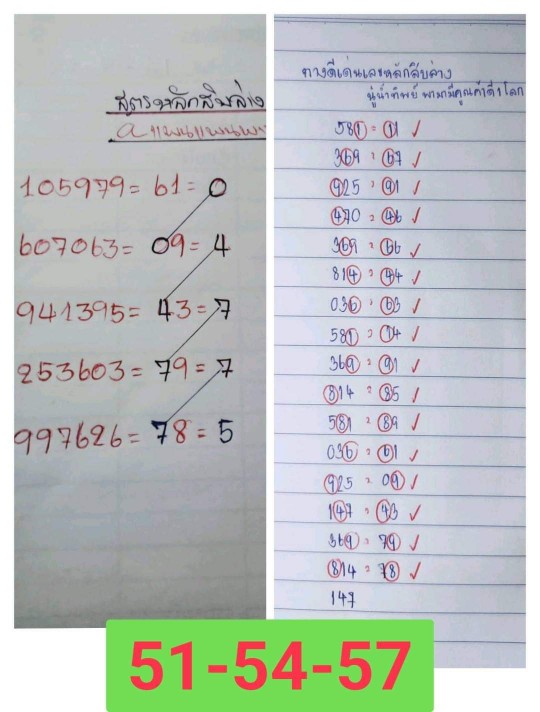 สูตรหลักสิบล่าง
105979 = 61 = 0
607063 = 09 = 4
941395 = 43 = 7
253603 = 79 = 7
997626 = 78 = 5
ทางดีเด่นเลขหลักสิบล่าง
581 = 11 ✓
369 = 67 ✓
925 = 91 ✓
470 = 46 ✓
369 = 66 ✓
814 = 44 ✓
036 = 63 ✓
581 = 14 ✓
369 = 91 ✓
814 = 85 ✓
581 = 89 ✓
036 = 61 ✓
925 = 09 ✓
147 = 43 ✓
369 = 79 ✓
814 = 78 ✓
147
51-54-57